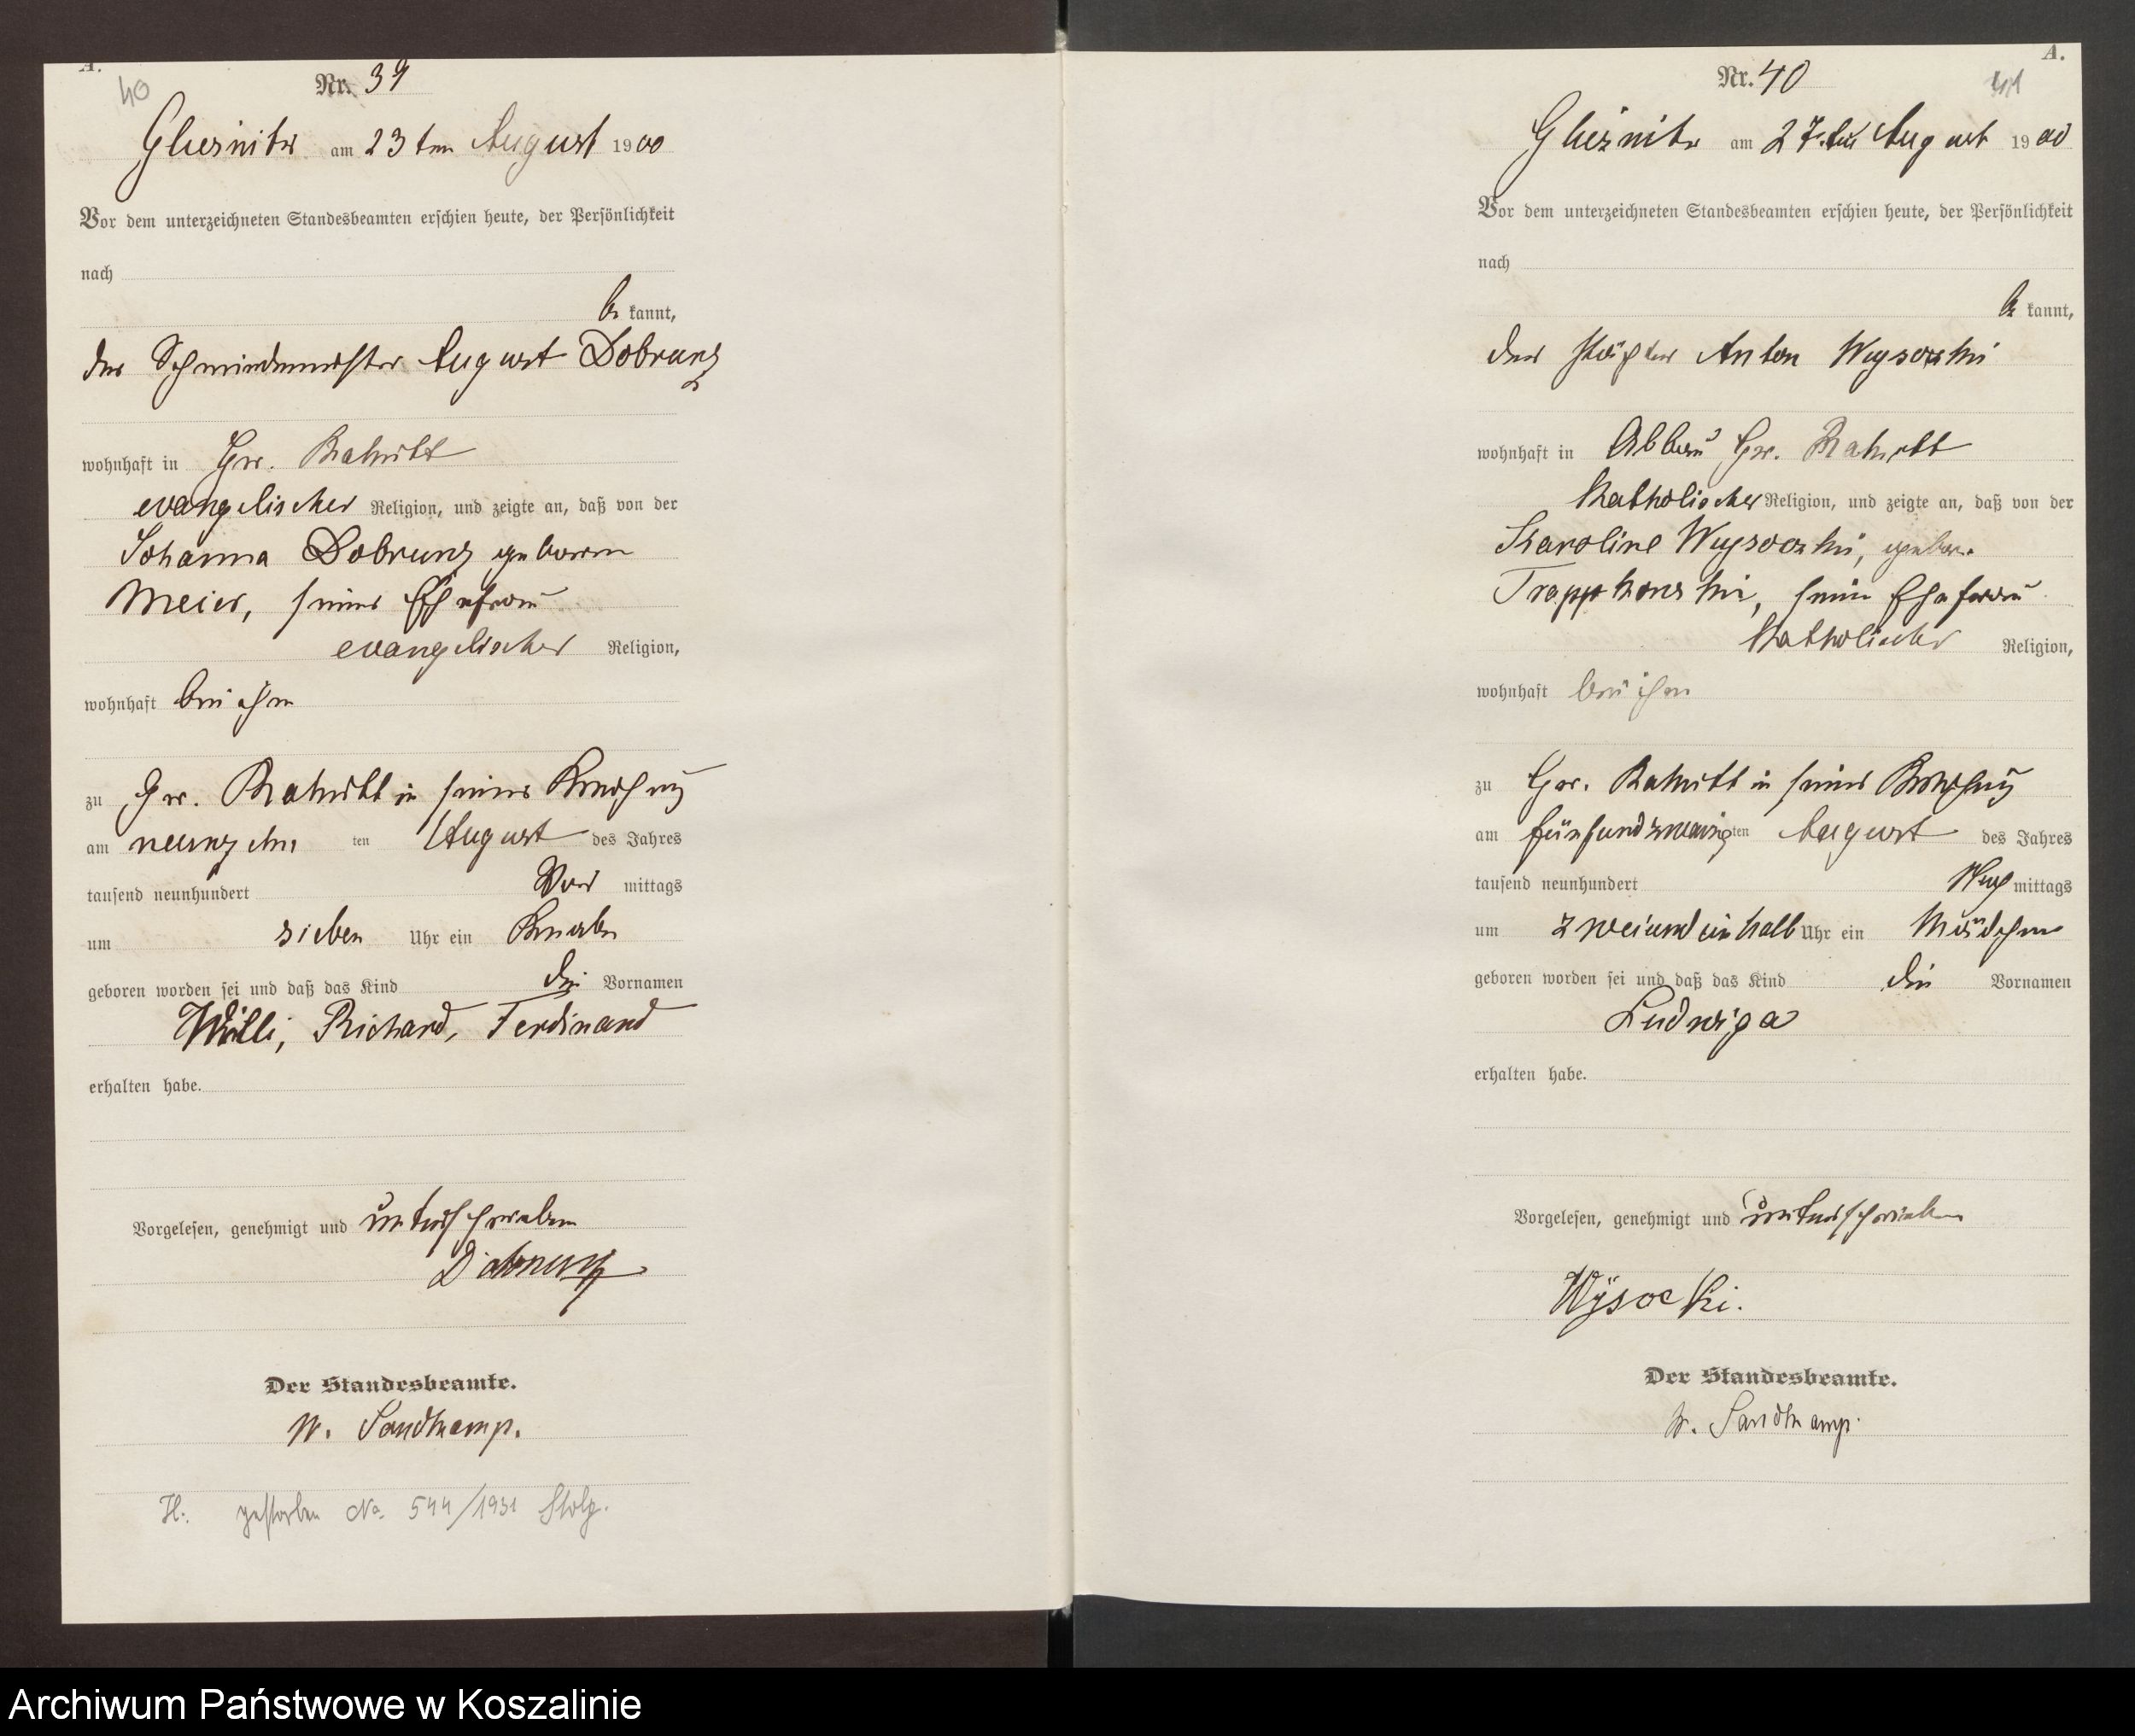 A.
40
Nr. 39
Gliesnitz am 23ten August 1900
Vor dem unterzeichneten Standesbeamten erschien heute, der Persönlichkeit
nach
be kannt,
der Schmiedemeister August Dobrunz
wohnhaft in Gr. Rakitt
evangelischer Religion, und zeigte an, daß von der
Johanna Dobrunz geboren
Meier, seiner Ehefrau
evangelischer Religion,
wohnhaft bei ihm
zu Gr. Rakitt in seiner Behausung
am neunzehn ten August des Jahres
tausend neunhundert Vor mittags
um sieben Uhr ein Knabe
geboren worden sei und daß das Kind die Vornamen
Willi, Richard, Ferdinand
erhalten habe.
Vorgelesen, genehmigt und unterschrieben
Dobrunz
Der Standesbeamte.
W. Sandkamp.
gestorben No. 544/1931 Stolp.
A.
41
Nr. 40
Gliesnitz am 27ten August 1900
Vor dem unterzeichneten Standesbeamten erschien heute, der Persönlichkeit
nach
be kannt,
der Pächter Anton Wysocki
wohnhaft in Abbau Gr. Rakitt
katholischer Religion, und zeigte an, daß von der
Karoline Wysocki, gebor.
seiner Ehefrau
katholischer Religion,
wohnhaft bei ihm
zu Gr. Rakitt in seiner Behausung
am fünfundzwanzig ten August des Jahres
tausend neunhundert Nach mittags
um zweiundeinhalb Uhr ein Mädchen
geboren worden sei und daß das Kind die Vornamen
Ludwiga
erhalten habe.
Vorgelesen, genehmigt und unterschrieben
Wÿsocki.
Der Standesbeamte.
W. Sandkamp.
Archiwum Państwowe w Koszalinie